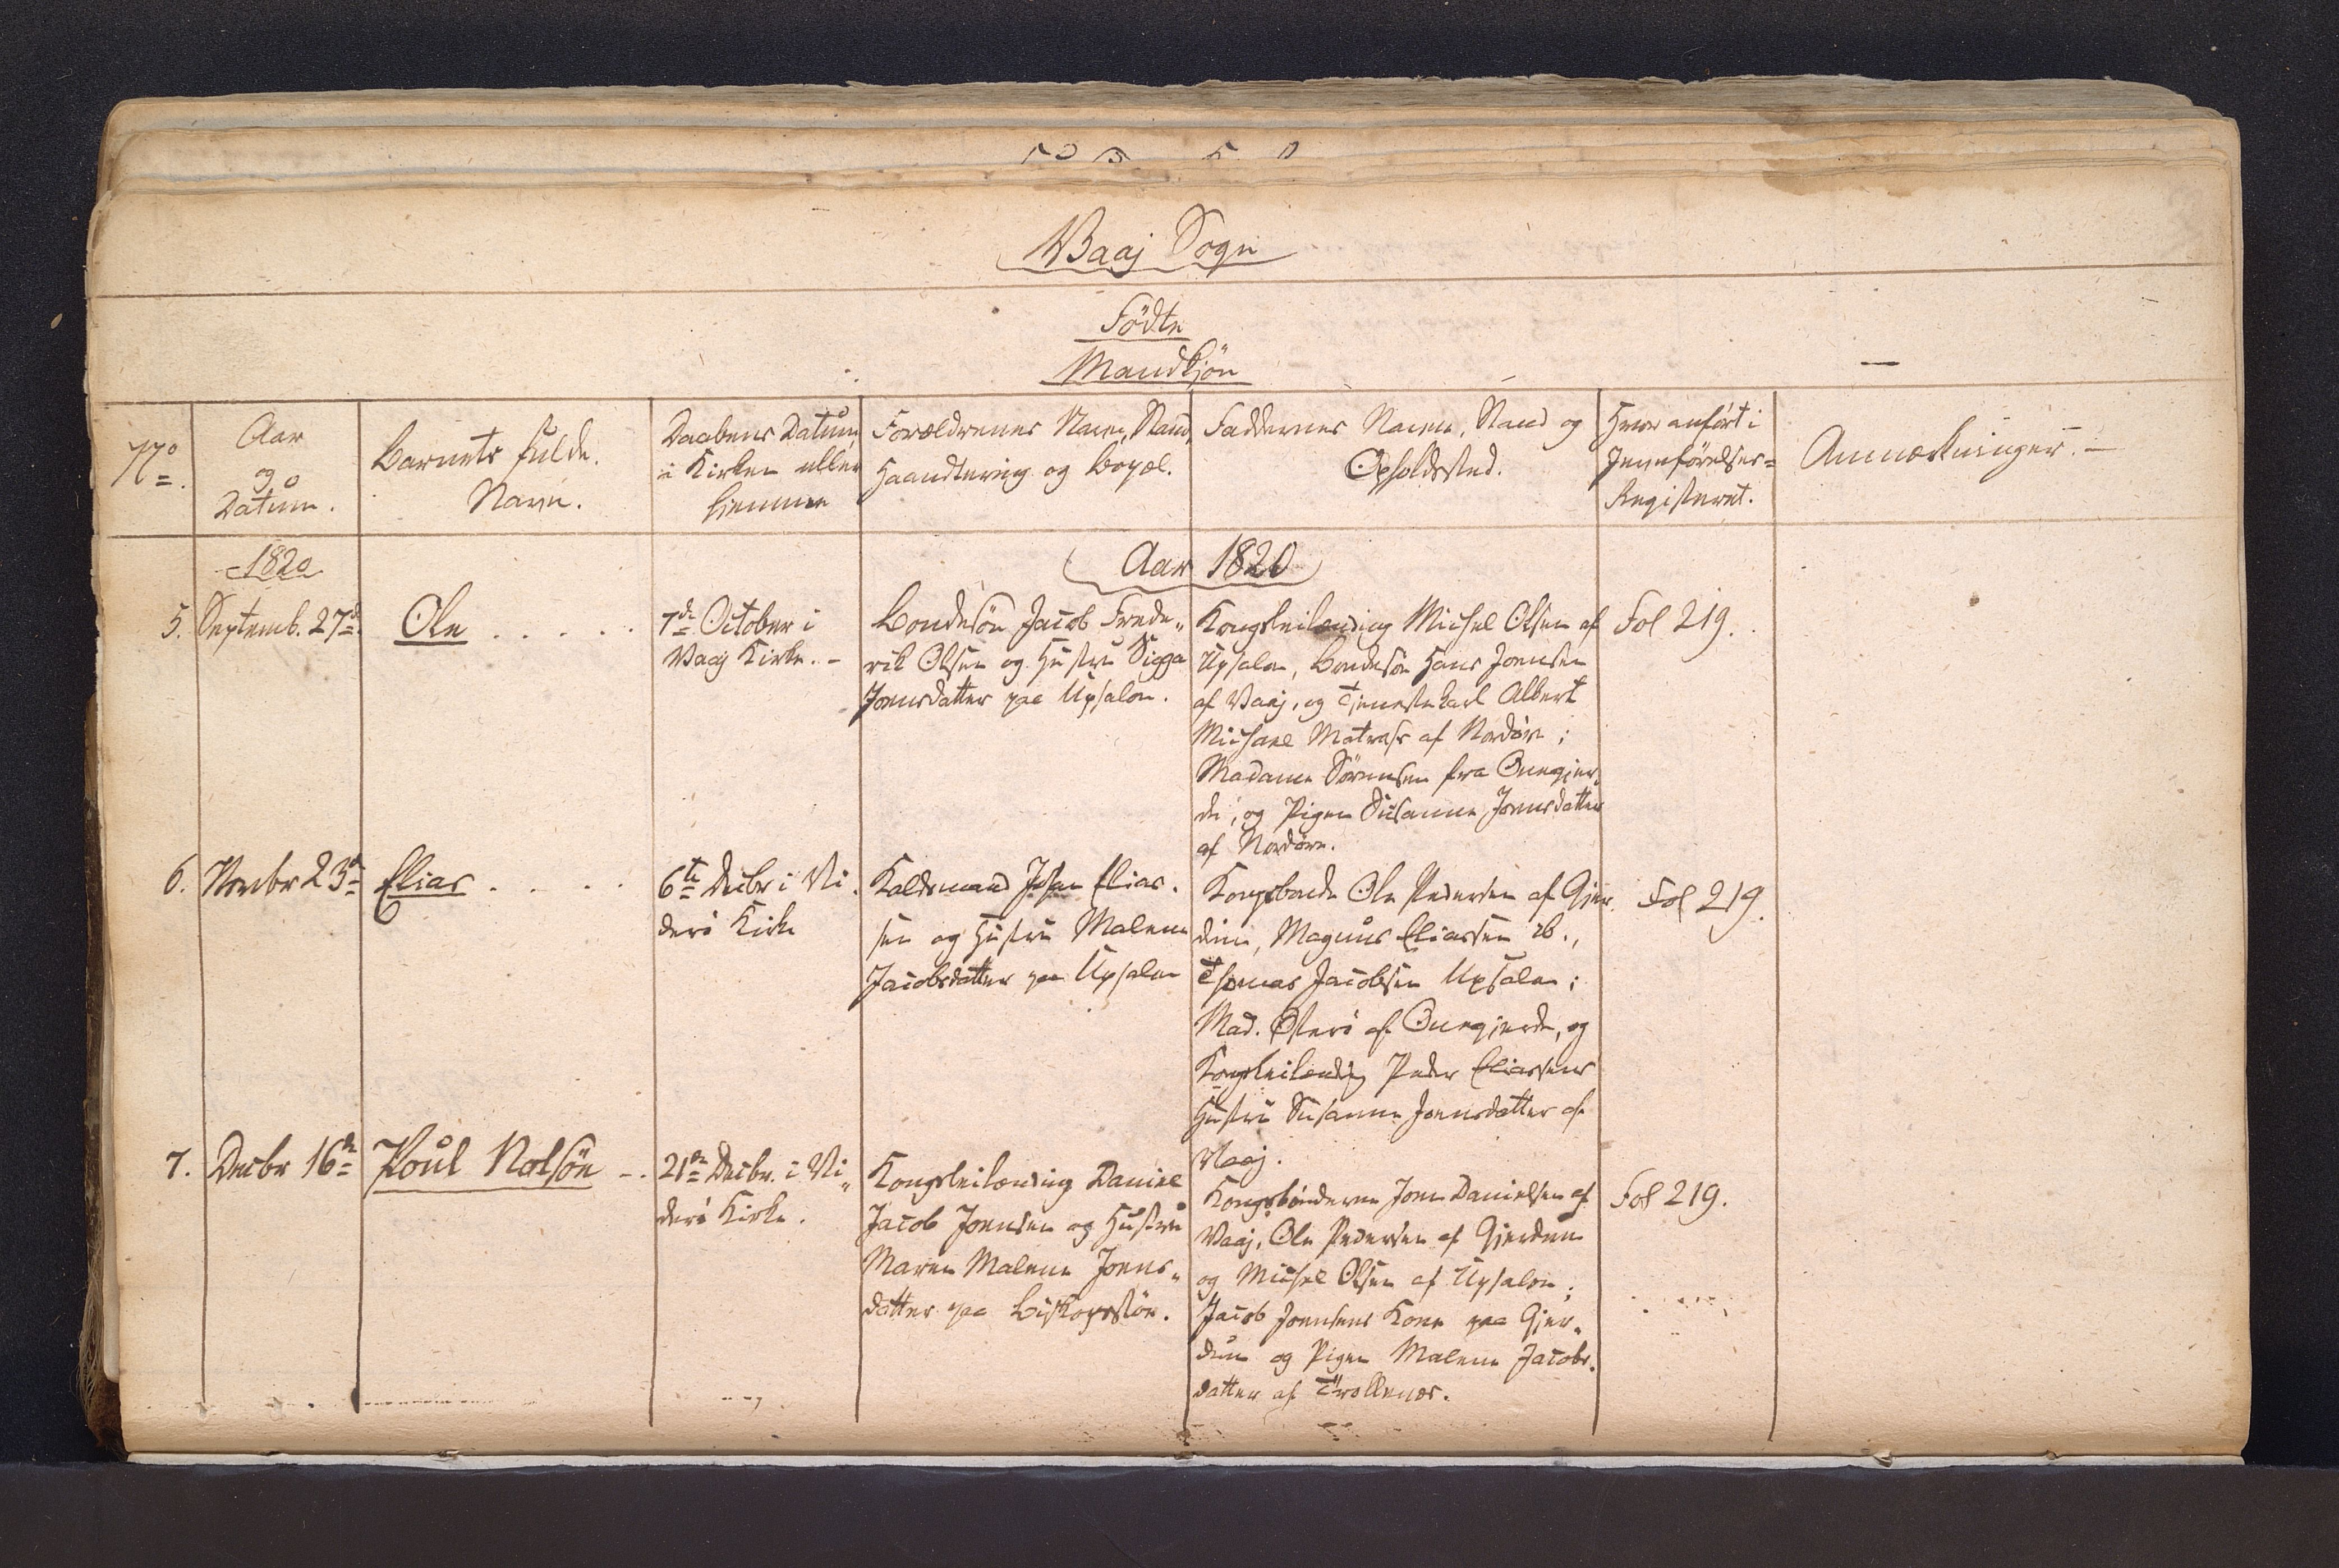 Vaaj Sogn
Födte
Mandkjön
No.
Aar
og
Datum.
Barnets fulde
Navn.
Daabens Datum
i Kirken eller
hjemme
Forældrenes Navn, Stand,
Haandtering og Bopæl.
Faddernes Navn, Stand og
Opholdssted.
Hvor anfört i
Jevnförelses-
Registeret.
Anmærkninger. —
1820
Aar 1820
5.
Septemb. 27d.
Ole . . . . .
7de October i
Vaaj Kirke. -
Bondesön Jacob Frede„
rik Olsen og Hustru Sigga
Joensdatter paa Upsalon.
Kongsleilænding Michel Olsen af
Upsalon, Bondesön Hans Joensen
af Vaaj, og Tjenestekarl Albert
Michael Matras af Nordöre;
Madame Sörensen fra Onegjer„
de, og Pigen Susanne Joensdatter
af Nordöre.
Fol 219.
6.
Novbr 23de
Elias . . . .
6te Decbr i Vi„
derö Kirke
Kaldsmand Johan Elias„
sen og Hustru Malene
Jacobsdatter paa Upsalon
Kongsbonde Ole Pedersen af Gjer„
dum, Magnus Eliassen ib.,
Thomas Jacobsen Upsalon;
Mad. Österö af Onegjerde, og
Kongsleilænding Peder Eliassens
Hustru Susanne Joensdatter af
Vaaj.
Fol 219.
7.
Decbr 16de
Poul Nolsöe - .
21de Decbr. i Vi„
derö Kirke.
Kongsleilænding Daniel
Jacob Joensen og Hustru
Maren Malene Joens„
datter paa Biskopstöe.
Kongsbönderne Joen Danielsen af
Vaaj, Ole Pedersen af Gjerdum
og Michel Olsen af Upsalon;
Jacob Joensens Kone paa Gjer„
dum og Pigen Malene Jacobs„
datter af Trollenes.
Fol 219.